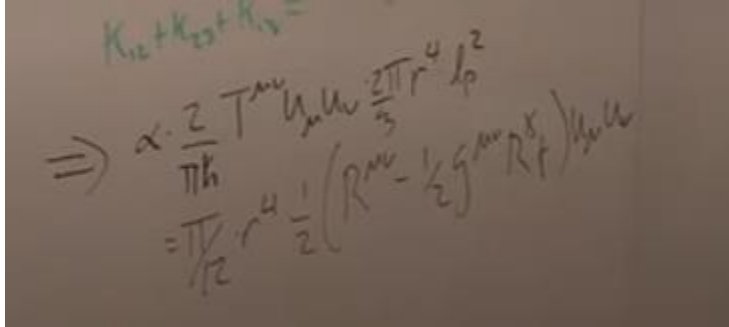 K₁₂+K₂₃+K₁₃=
⇒ α · 2/(πħ) T^{μν} u_μ u_ν 2π/3 r⁴ lₚ²
= π/12 · r⁴ 1/2 (R^{μν} - ½ g^{μν} R^γ_γ) u_μ u_ν